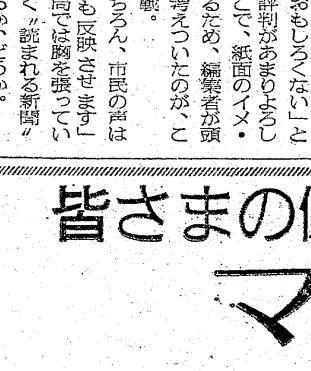 おもしろくない」と
評判があまりよろし
こで、紙面のイメ・
るため、編案者が頭
考えついたのが、こ
戦。
ちろん、市民の声は
も反映させます」
局では胸を張ってい
く〝読まれる新聞〟
るか、どうか。
皆さまの
マ